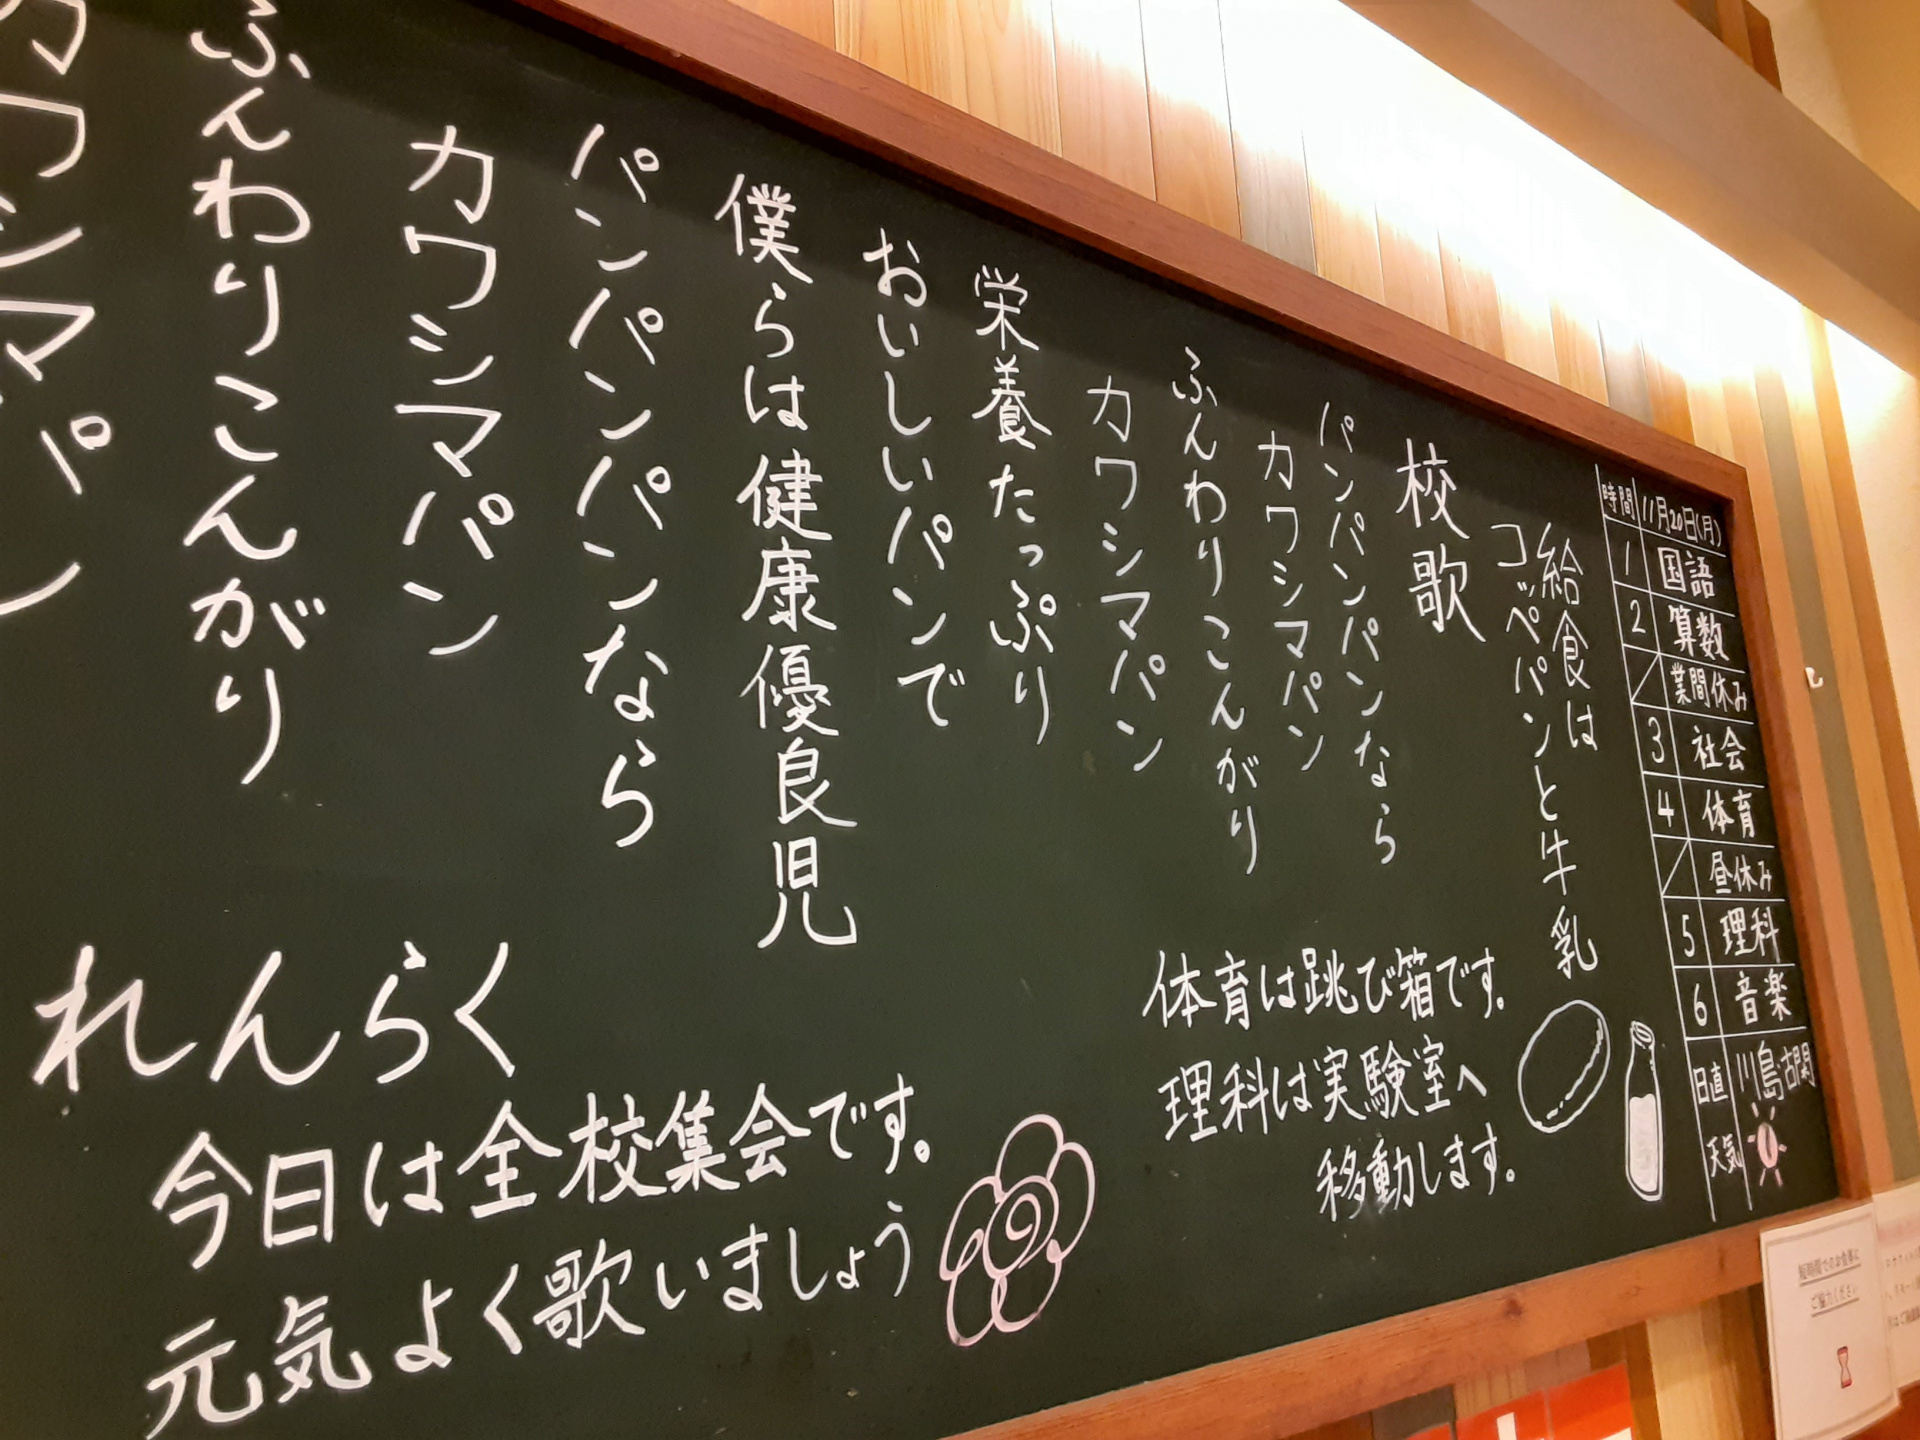 時間 11月20日(月)
1 国語
2 算数
業間休み
3 社会
4 体育
昼休み
5 理科
6 音楽
日直 川島 古関
天気
給食は
コッペパンと牛乳
校歌
パンパンパンなら
カワシマパン
ふんわりこんがり
カワシマパン
栄養たっぷり
おいしいパンで
僕らは健康優良児
パンパンパンなら
カワシマパン
ふんわりこんがり
カワシマパン
体育は跳び箱です。
理科は実験室へ
移動します。
れんらく
今日は全校集会です。
元気よく歌いましょう
短時間でのお食事に
ご協力ください